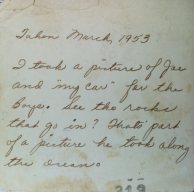 Taken March, 1953
I took a picture of Joe
and "my car" for the
Boys. See the rocks
that go in? Thats part
of a picture he took along
the ocean.
219